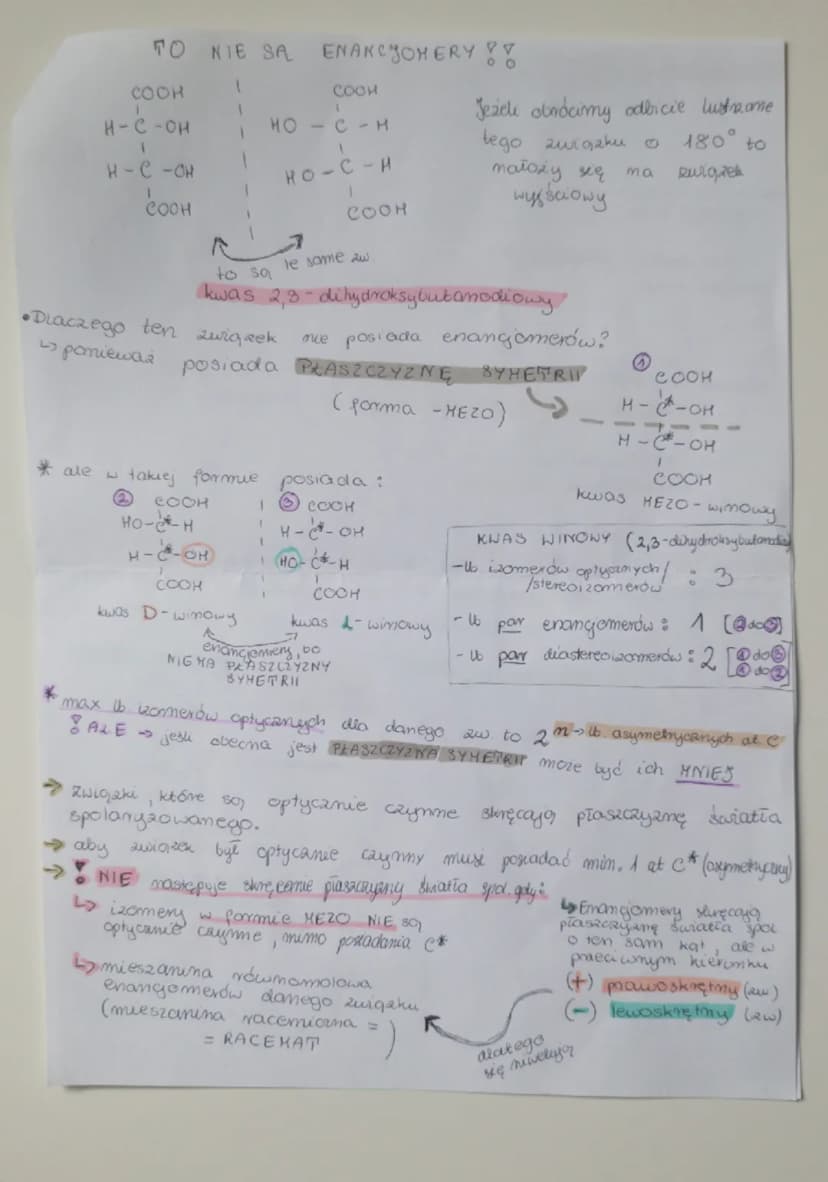 TO NIE SĄ ENANCJOMERY !!
COOH
H-C-OH
H-C-OH
COOH
COOH
HO-C-H
HO-C-H
COOH
Jeżeli obrócimy odbicie lustrzane
tego związku o 180° to
nałoży się na związek
wyjściowy
to są te same zw.
kwas 2,3-dihydroksybutanodiowy
•Dlaczego ten związek nie posiada enancjomerów?
↳ponieważ posiada PŁASZCZYZNĘ SYMETRII
(forma -MEZO)
①
COOH
H-C*-OH
H-C*-OH
COOH
kwas MEZO-winowy
* ale w takiej formie posiada:
② COOH
HO-C*-H
H-C*-OH
COOH
kwas D-winowy
③ COOH
H-C*-OH
HO-C*-H
COOH
kwas L-winowy
enancjomery, bo
NIE MA PŁASZCZYZNY
SYMETRII
KWAS WINOWY (2,3-dihydroksybutanodio
-lb izomerów optycznych/
/stereoizomerów : 3
-lb par enancjomerów: 1 [② do ③]
-lb par diastereoizomerów: 2 [① do ③
① do ②]
* max lb izomerów optycznych dla danego zw to 2ⁿ→lb asymetrycznych at C
! ALE → jeśli obecna jest PŁASZCZYZNA SYMETRII może być ich MNIEJ
→ związki, które są optycznie czynne skręcają płaszczyznę światła
spolaryzowanego.
→ aby związek był optycznie czynny musi posiadać min. 1 at C* (asymetryczny)
→ ! NIE następuje skręcenie płaszczyzny światła spol. gdy:
↳ izomery w formie MEZO NIE są
optycznie czynne, mimo posiadania C*
↳ mieszanina równomolowa
enancjomerów danego związku
(mieszanina racemiczna =
= RACEMAT )
↳Enancjomery skręcają
płaszczyznę światła spol
o ten sam kąt, ale w
przeciwnym kierunku
(+) prawoskrętny (zw)
(-) lewoskrętny (zw)
dlatego
się niwelują